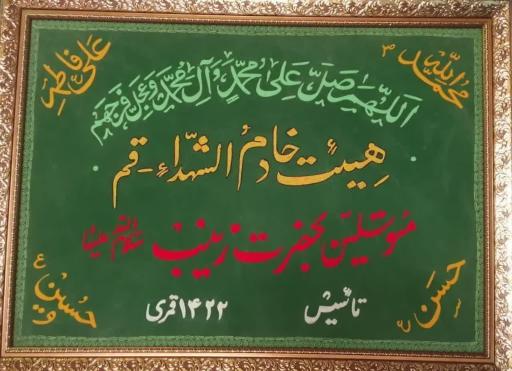 محمد الله ص
علی فاطمه
اللهم صل علی محمد و آل محمد و عجل فرجهم
هیئت خادم الشهداء - قم
متوسلین بحضرت زینب سلام الله علیها
حسن ع
و حسین ع
تاسیس ۱۴۲۲ قمری